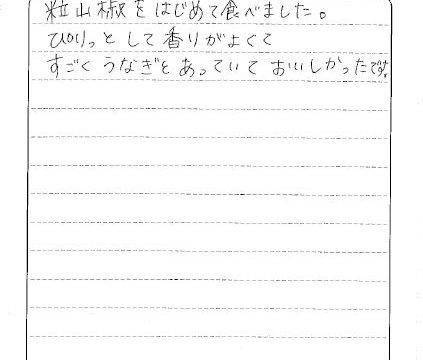 粒山椒をはじめて食べました。
ぴりっとして香りがよくて
すごくうなぎとあっていておいしかったです。